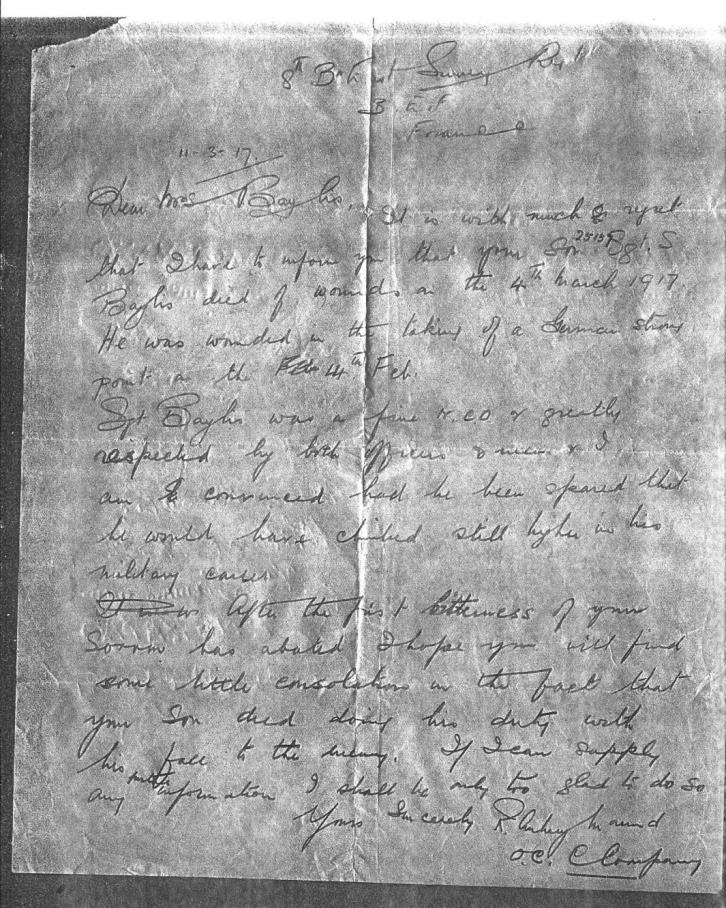 8th Btn Surrey Regt
B E F
France
11-3-17.
Dear Mrs Baylis, It is with much regret
that I have to inform you that your Son Sgt. S
Baylis died of wounds on the 4th March 1917.
He was wounded in the taking of a German strong
point on the 4th Feb.
Sgt Baylis was a fine N.C.O & greatly
respected by both officers & men & I
am convinced had he been speared that
he would have climbed still higher in his
military career
After the first bitterness of your
Sorrow has abated I hope you will find
some little consolation in the fact that
your Son died doing his duty with
his face to the enemy. If I can supply
any further information I shall be only too glad to do so
Yours Sincerely R.
O.C. C Company